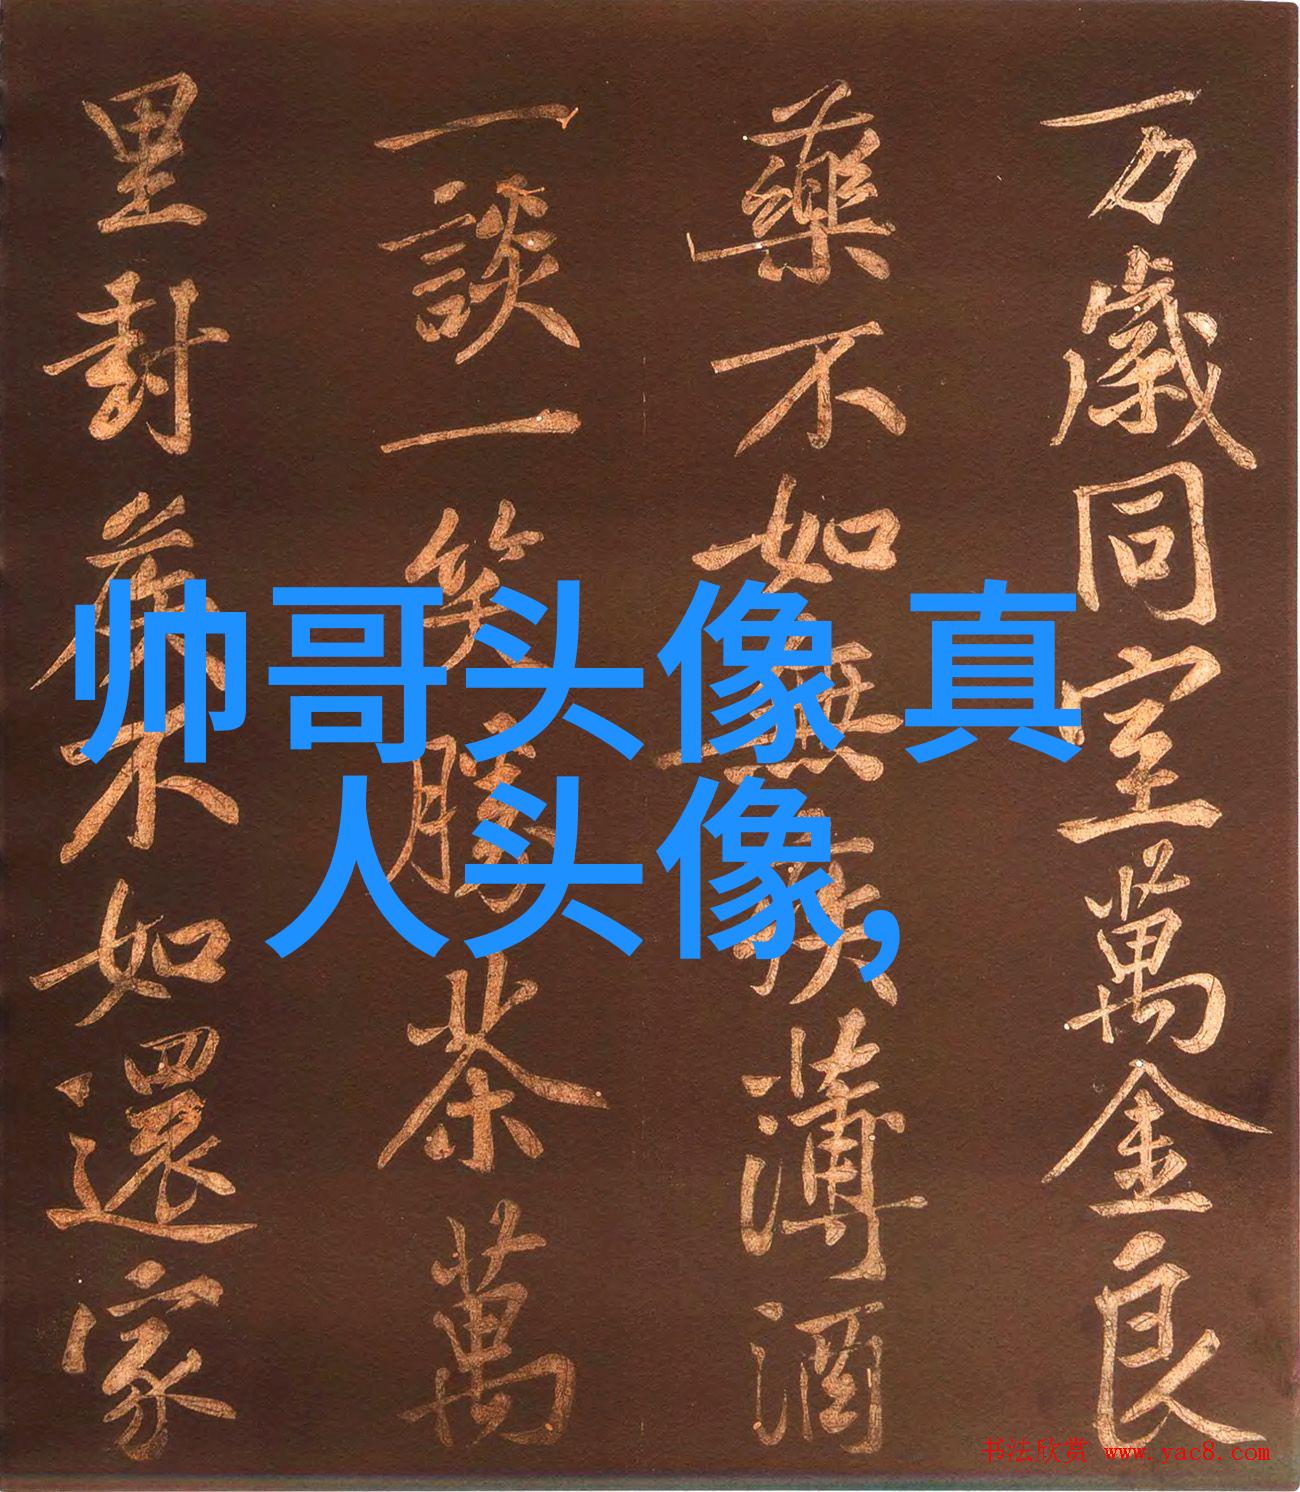 万歲同室萬金良
藥不如無疾薄酒
一談一笑勝茶萬
里封侯不如還家
帅哥头像 真
人头像,
书法欣赏 www.yac8.com